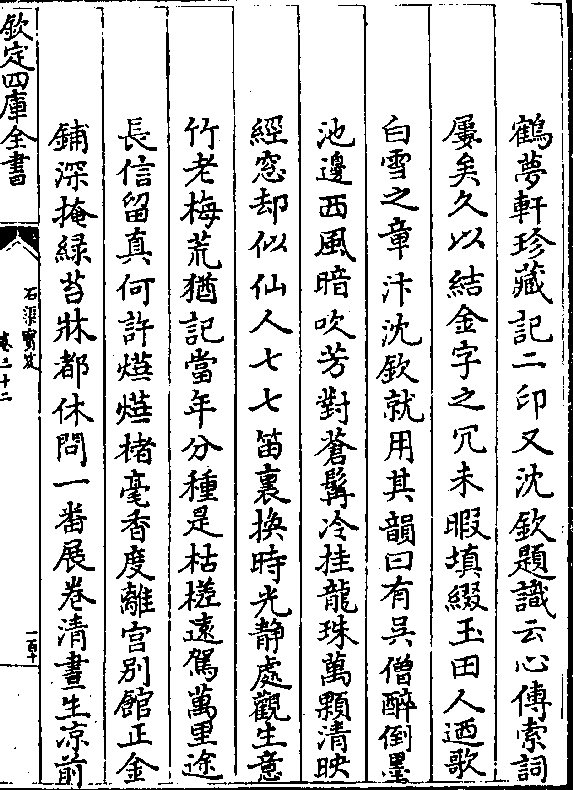 鶴夢軒珍藏記二印又沈欽題識云心傳索詞
屢矣久以結金字之冗未暇填綴玉田人廼歌
白雪之章汴沈欽就用其韻曰有吳僧醉倒墨
池邊西風暗吹芳對蒼髯冷挂龍珠萬顆清映
經窓却似仙人七七笛裏換時光静處觀生意
竹老梅荒猶記當年分種是枯槎遠駕萬里途
長信留真何許爀爀楮毫香度離宫别館正金
鋪深掩緑苔牀都休問一番展卷清晝生凉前
欽定四庫全書
石渠寳笈
卷三十二
一百十